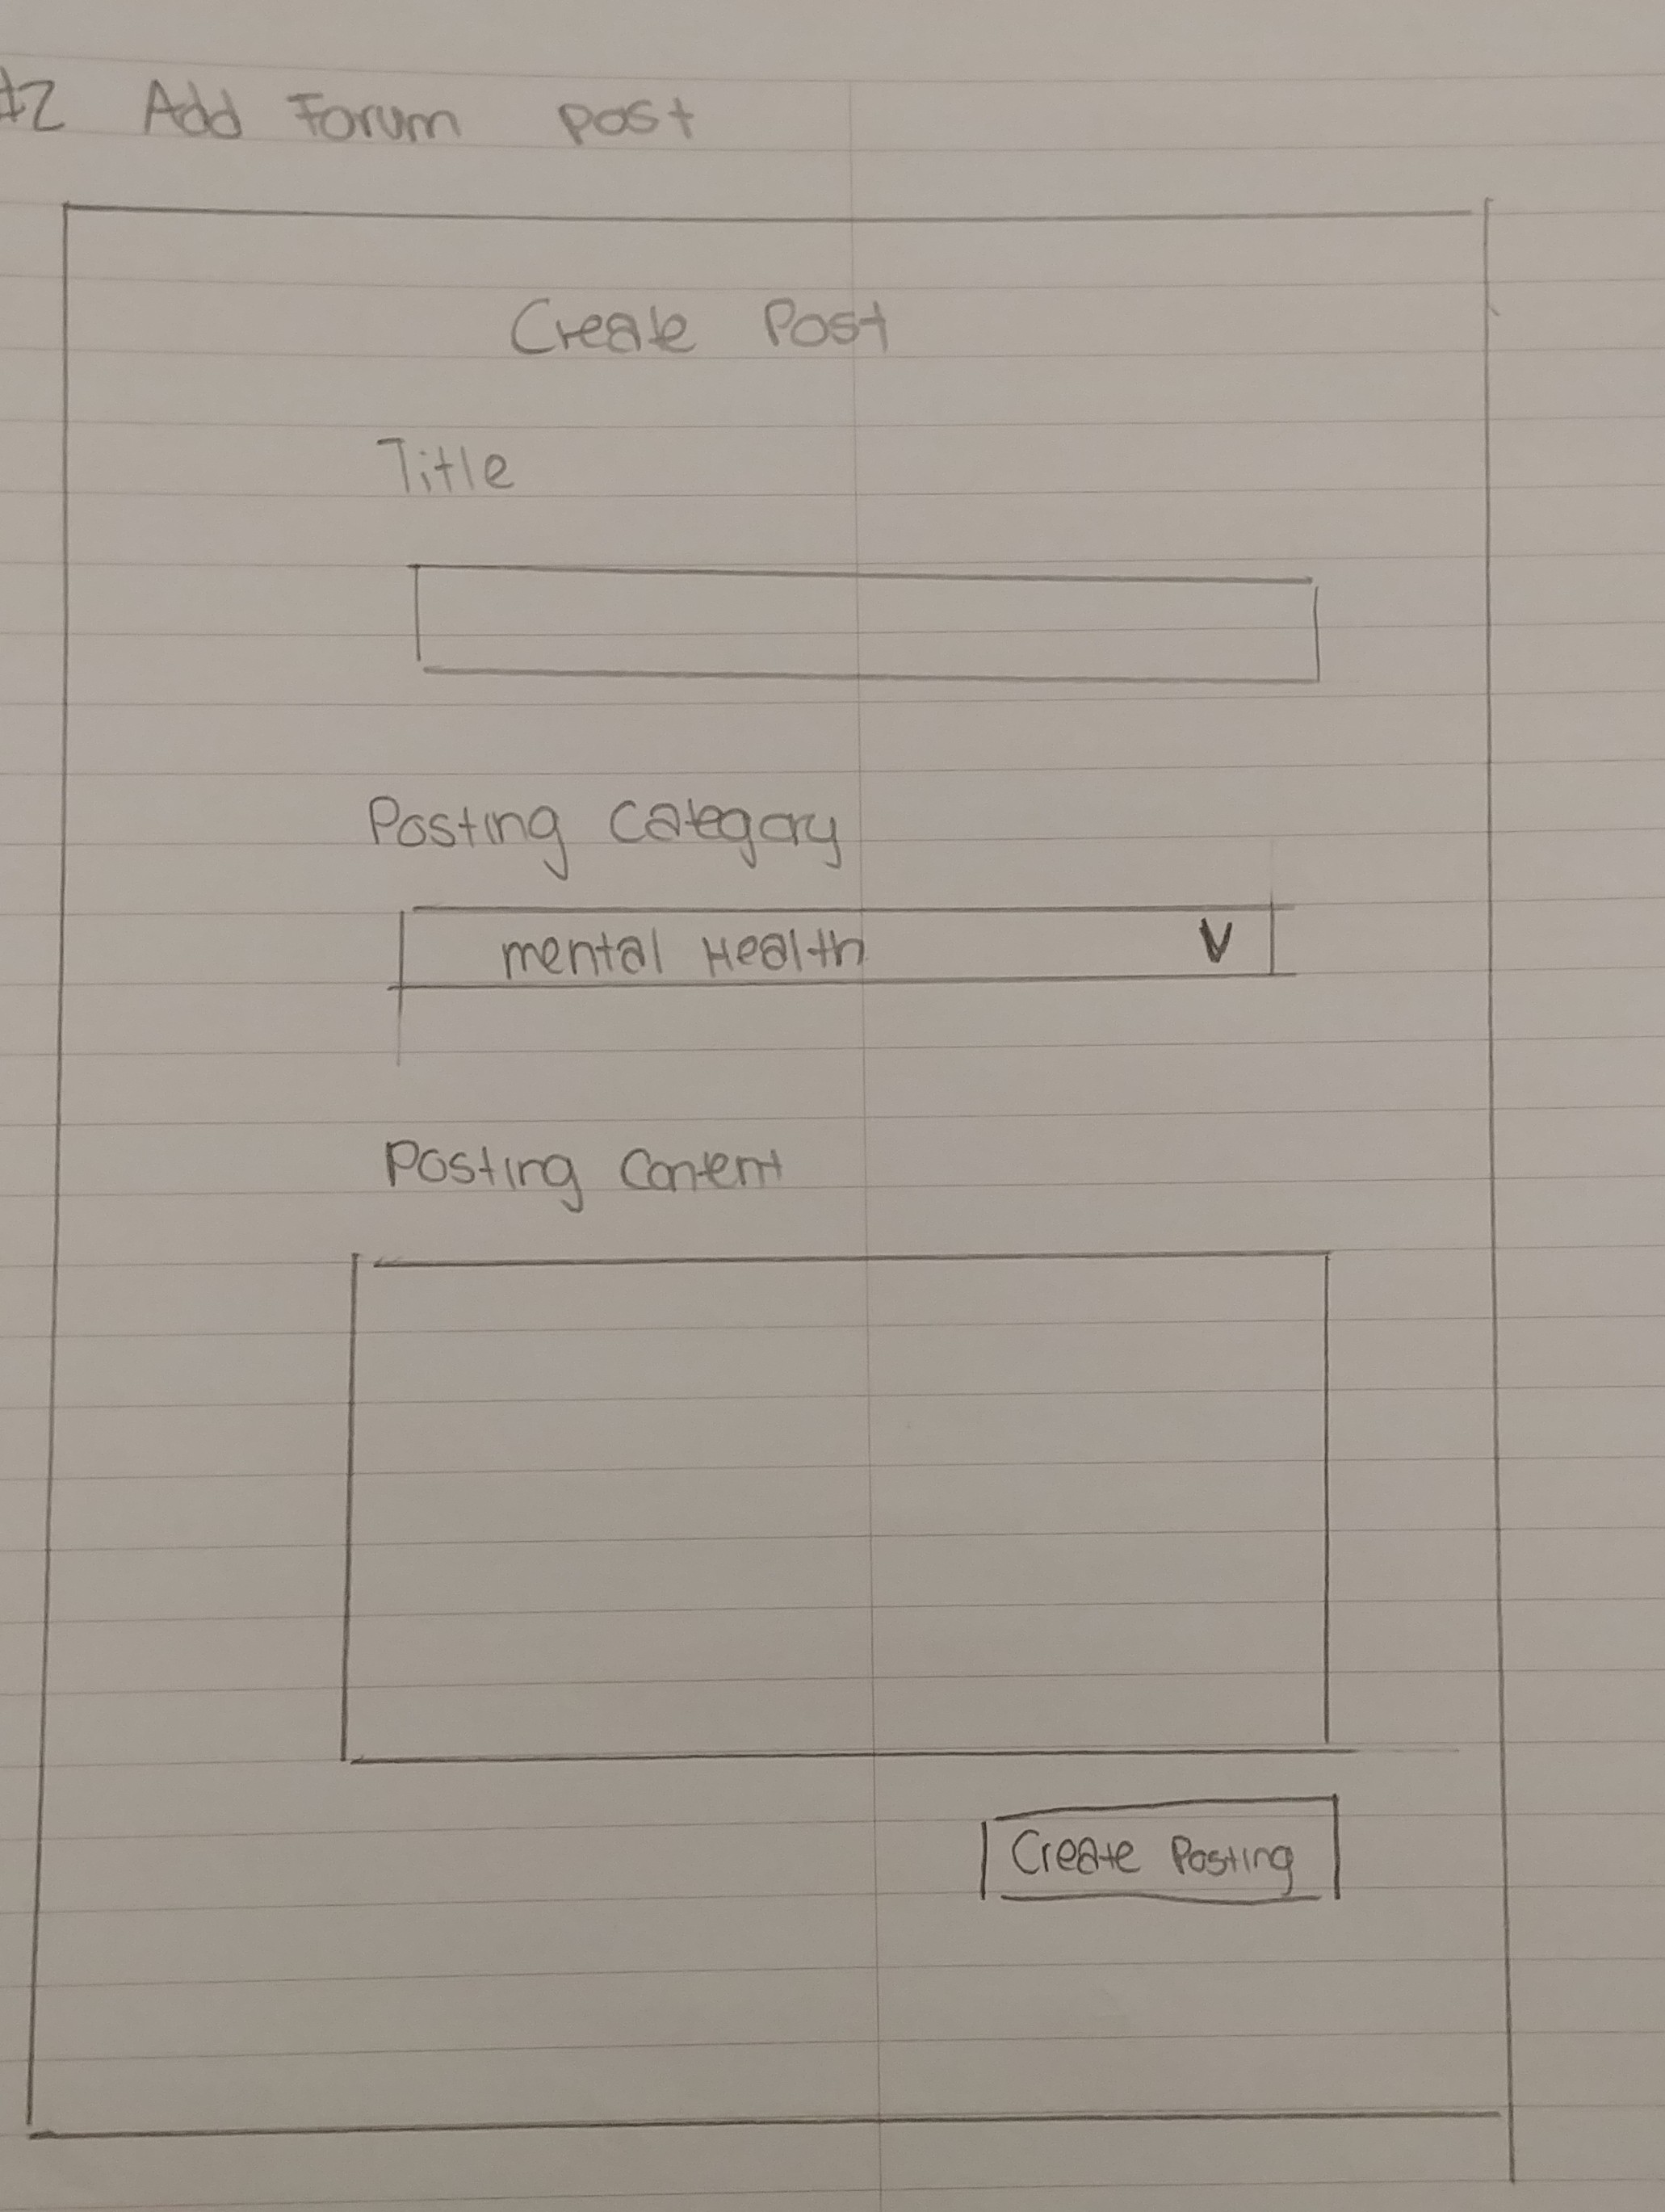 #2 Add Forum post
Create Post
Title
Posting Category
mental Health V
Posting Content
Create Posting